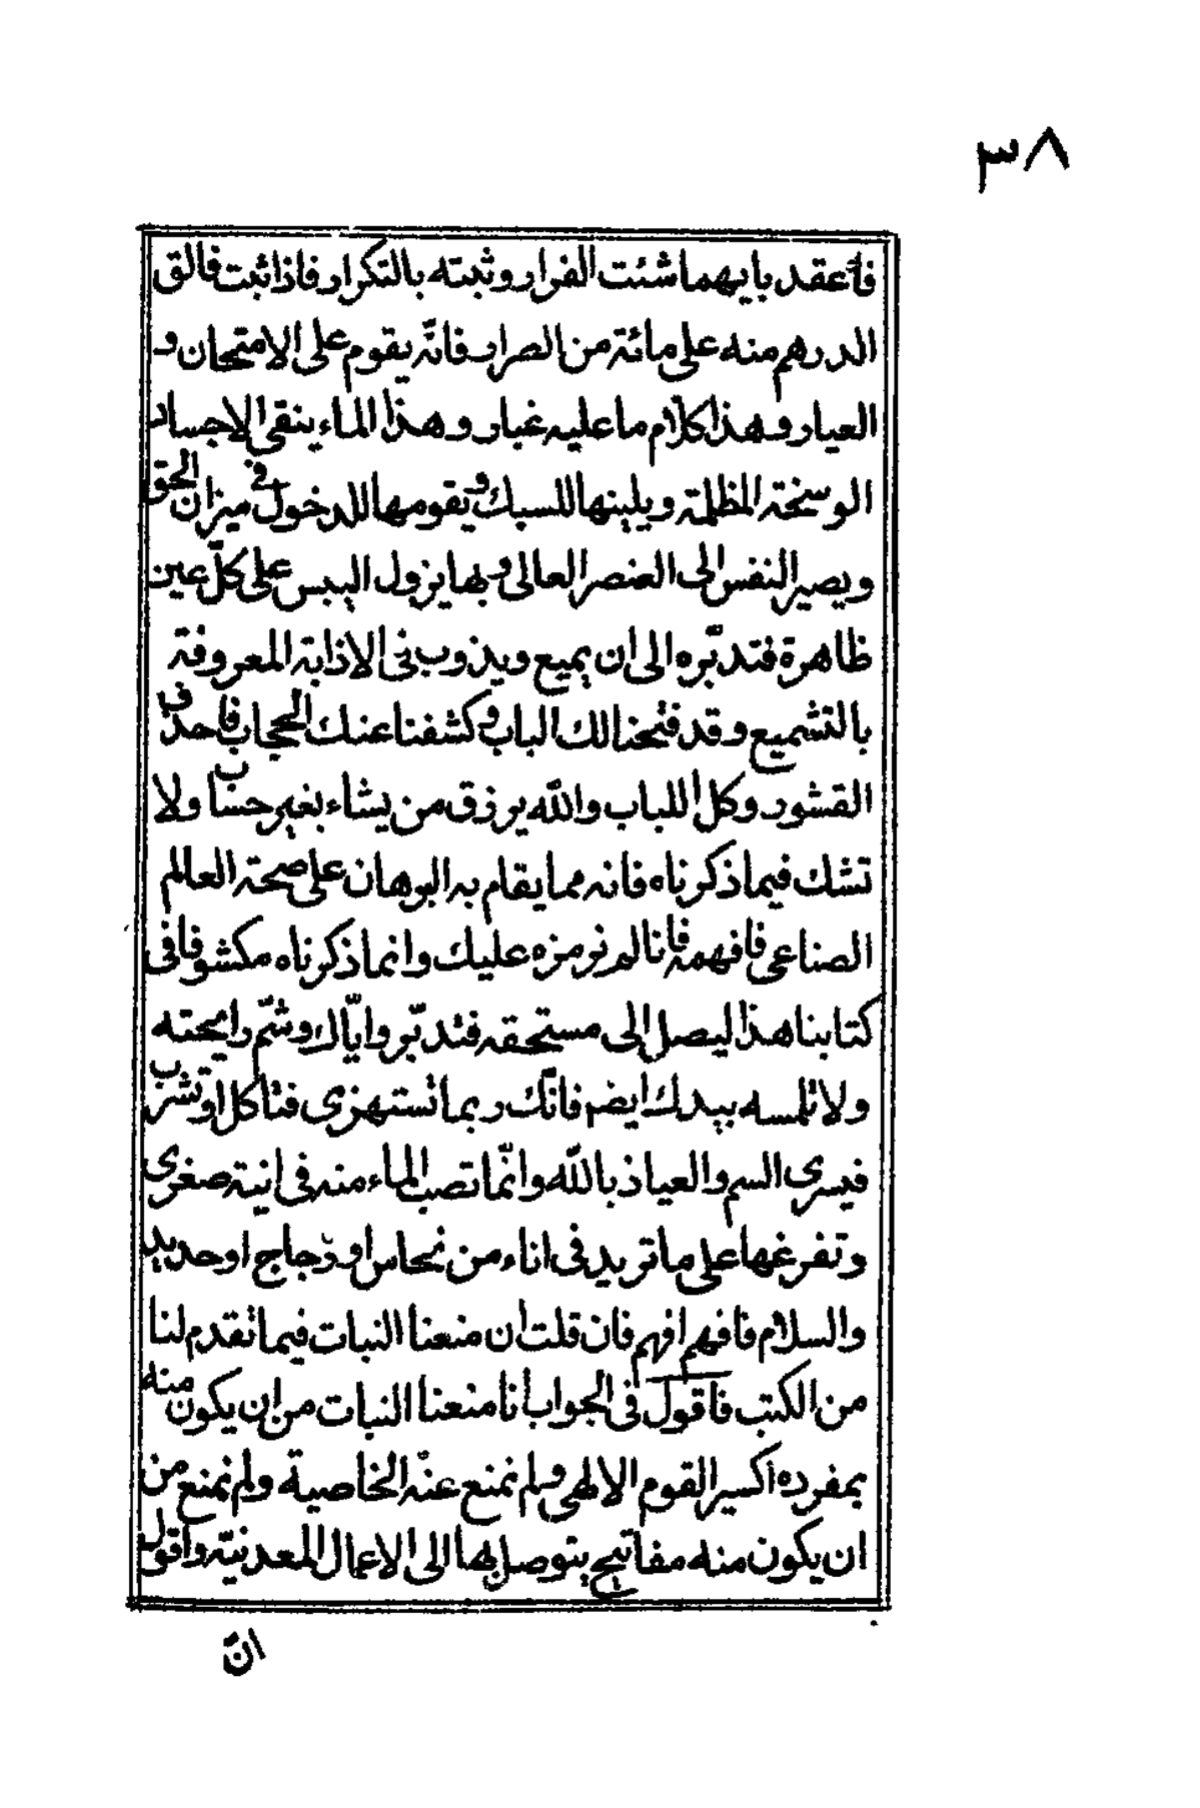 ٣٨
فأعقد بايهما شئت الفرار وثبته بالتكرار فاذا ثبت فالق
الدرهم منه على مائة من الصرار فانّه يقوم على الامتحان و
العيار وهذا كلام ما عليه غبار وهذا الماء ينقى الاجساد
الوسخة المظلمة ويلينها للسبك ويقومها للدخول فى ميزان الحق
ويصير النفس الى العنصر العالى وبها يزول اليبس على كلّ عين
ظاهرة فتدبّره الى ان يميع ويذوب فى الاذابة المعروفة
بالتشميع وقد فتحنا لك الباب وكشفنا عنك الحجاب فاحذف
القشور وكل اللباب والله يرزق من يشاء بغير حساب ولا
تشك فيما ذكرناه فانه مما يقام به البرهان على صحة العالم
الصناعى فافهمه فانا لم نرمزه عليك وانما ذكرناه مكشوفا فى
كتابنا هذا ليصل الى مستحقه فتدبّر واياّك وشمّ رايحته
ولا تلمسه بيدك ايضم فانّك ربما تستهزى فتاكل او تشرب
فيسرى السم والعياذ بالله وانّما تصب الماء منه فى انية صغرى
وتفرغها على ما تريد فى اناء من نحاس او زجاج او حديد
والسلام فافهم افهم فان قلت ان منعنا النبات فيما تقدم لنا
من الكتب فاقول فى الجواب انا منعنا النبات من ان يكون منه
بمفرده اكسير القوم الالهى ولم نمنع عنه الخاصية ولم نمنع من
ان يكون منه مفاتيح يتوصل بها الى الاعمال المعدنيّة واقول
انّ